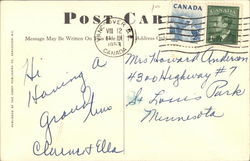 POST CARD
Message May Be Written On
Address Only
VANCOUVER B.C.
VIII 12
1953
CANADA
CANADA
Hi
Having a
Grand time
Clarence & Ella
Mrs Howard Anderson
4800 Highway #7
St Louis Park
Minnesota